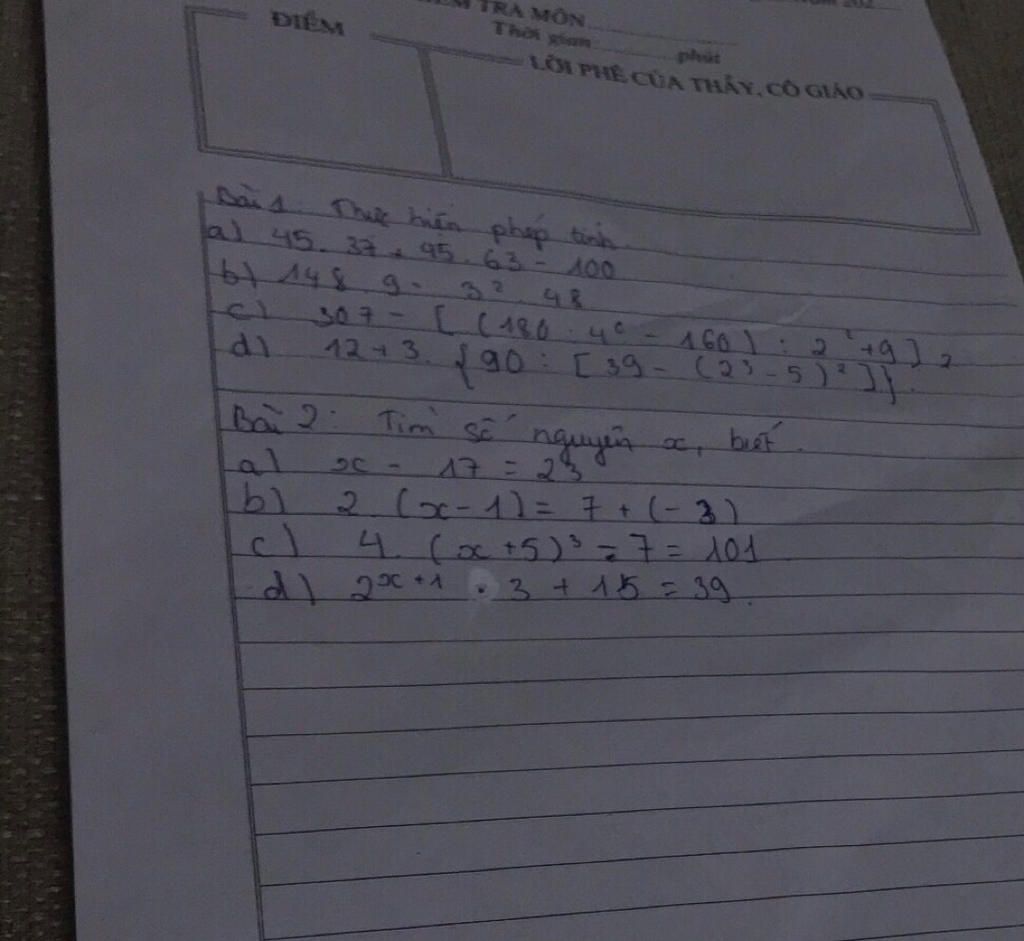 TRA MÔN
ĐIỂM
Thời gian: phút
LỜI PHÊ CỦA THẦY, CÔ GIÁO
Bài 1: Thực hiện phép tính
a) 45. 37 + 45. 63 - 100
b) 148. 9 - 3². 48
c) 307 - [(180. 4⁰ - 160) : 2² + 9] 2
d) 12 + 3. {90 : [39 - (2³ - 5)²]}.
Bài 2: Tìm số nguyên x, biết.
a) x - 17 = 23
b) 2. (x - 1) = 7 + (-3)
c) 4. (x + 5)³ - 7 = 101
d) 2ˣ⁺¹ . 3 + 15 = 39.